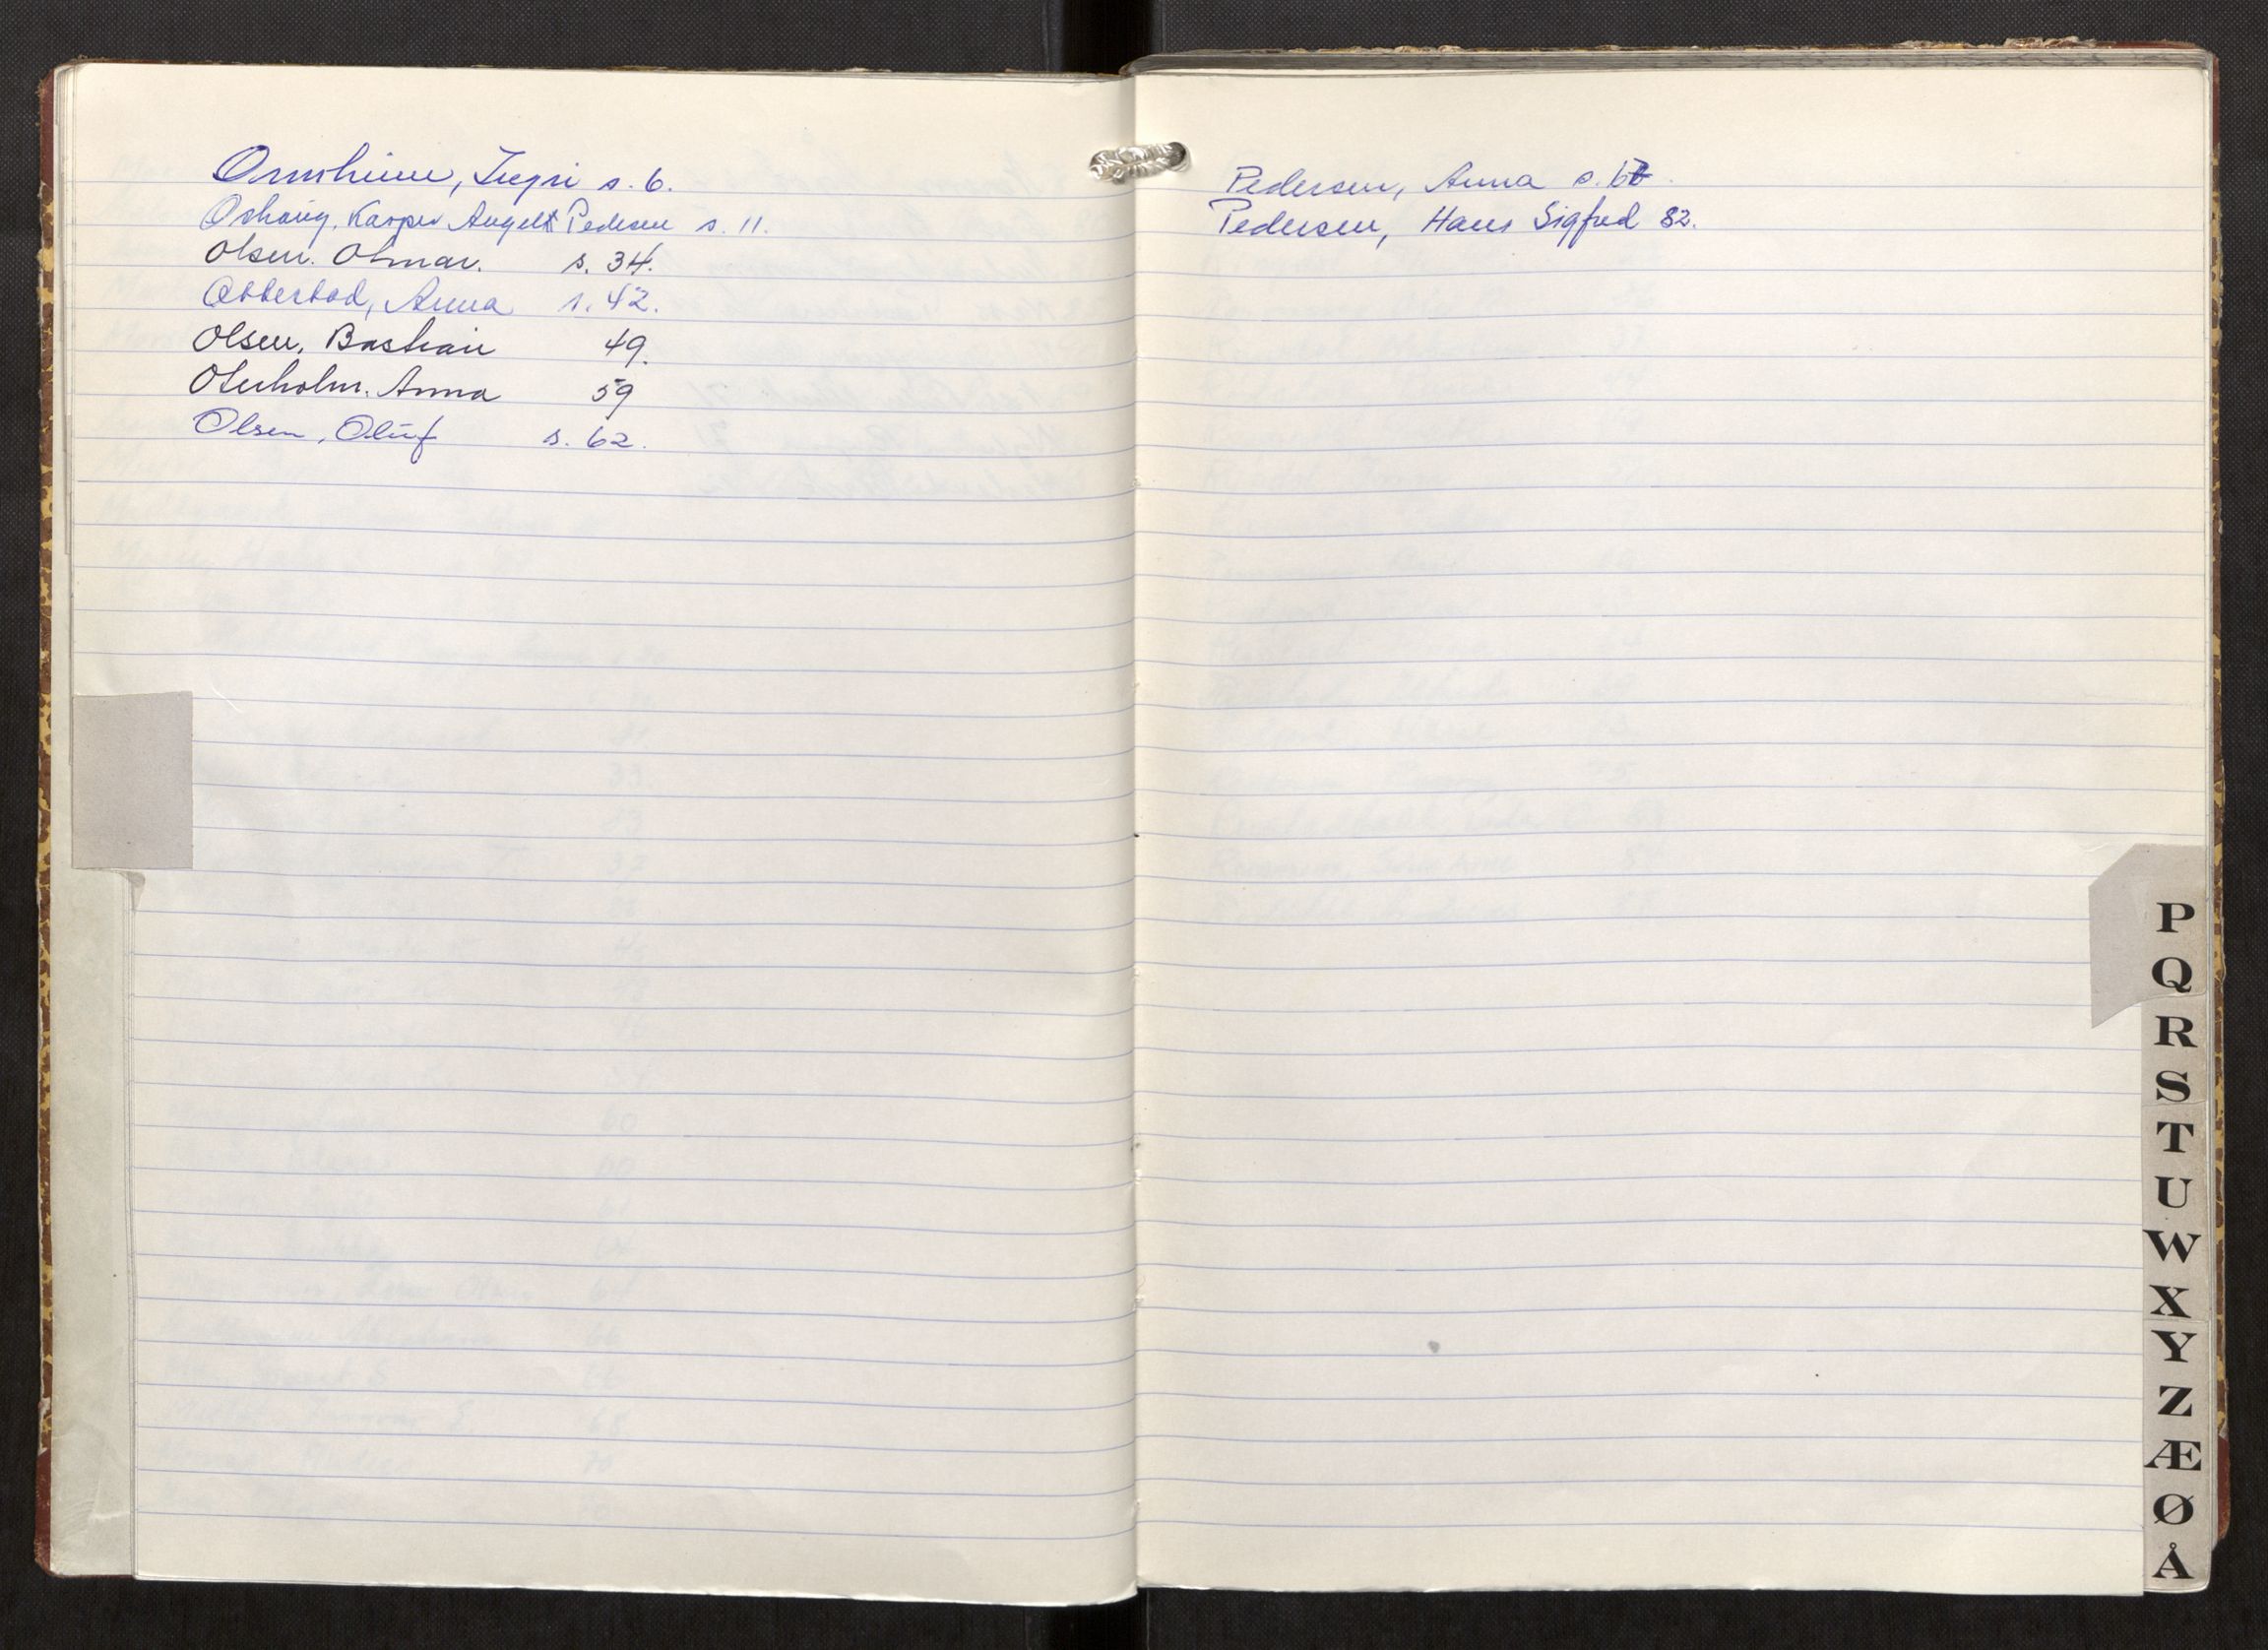 Ornsheim, Jugri s. 6.
Oshaug, Kasper Angelt Pedersen s. 11.
Olsen. Otmar. s. 34.
Otterbod, Anna s. 42.
Olsen, Bastian 49.
Oterholm. Anna 59
Olsen, Oluf s. 62.
Pedersen, Anna s.
Pedersen, Hans Sigfred 82.
P
Q
R
S
T
U
W
X
Y
Z
Æ
Ø
Å